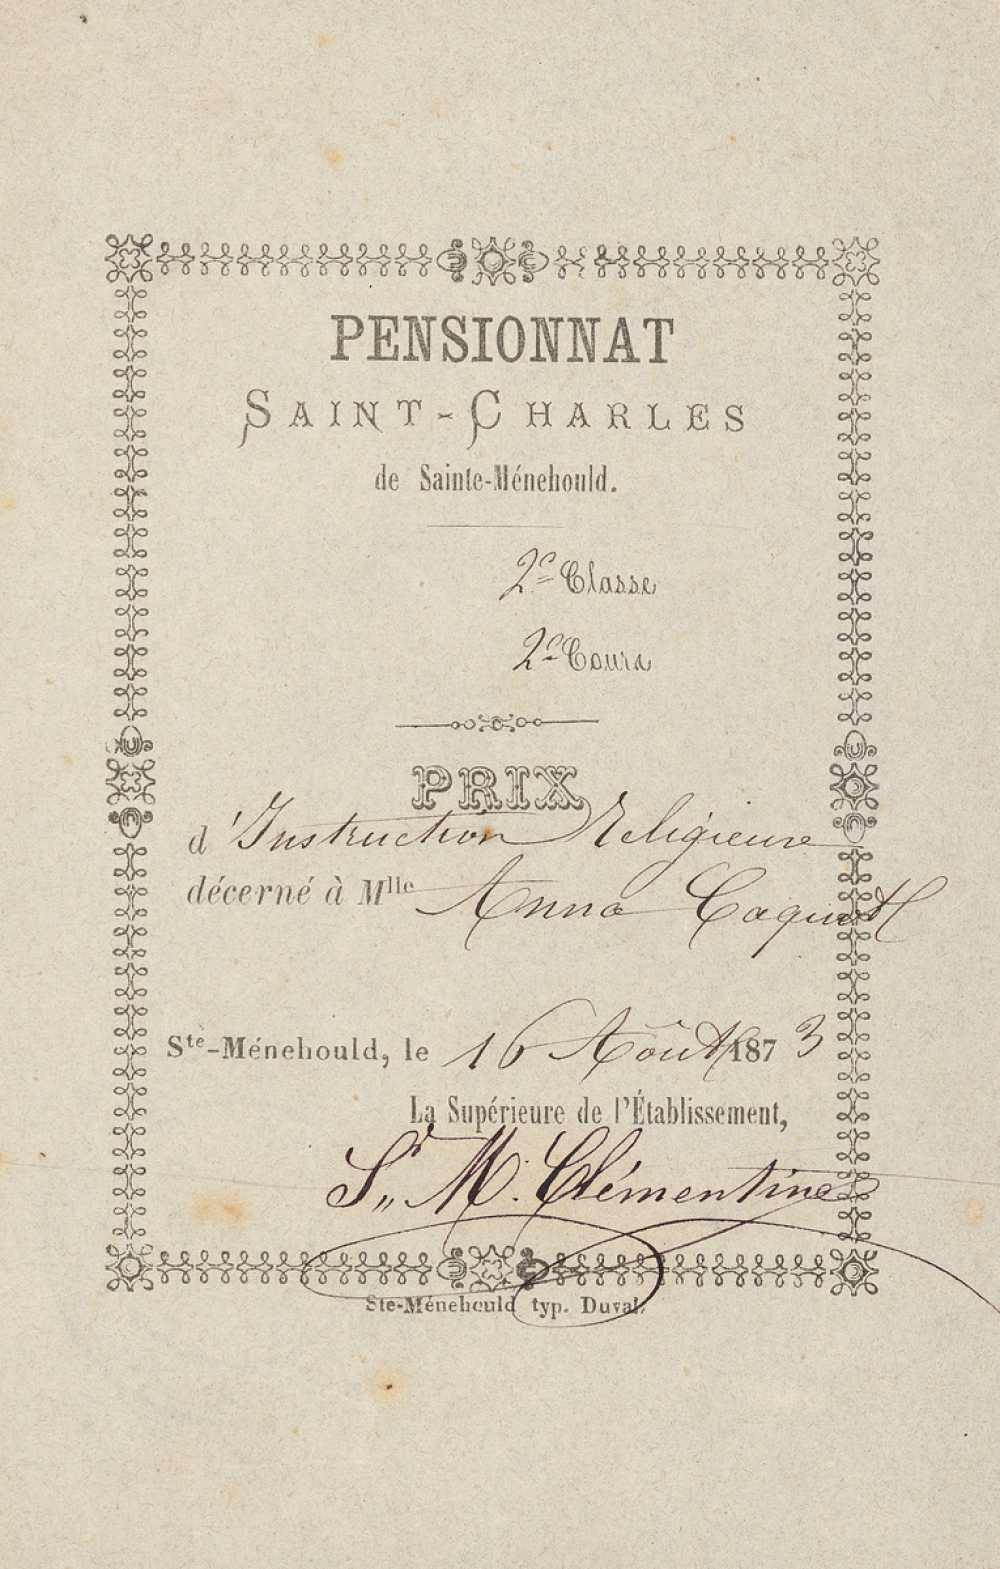 PENSIONNAT
SAINT-CHARLES
de Sainte-Ménehould.
2e Classe
2e Cours
PRIX
d'Instruction Religieuse
décerné à Mlle Anna Caquot
Ste-Ménehould, le 16 Août 1873
La Supérieure de l'Établissement,
Sr M. Clémentine
Ste-Ménehould typ. Duval.